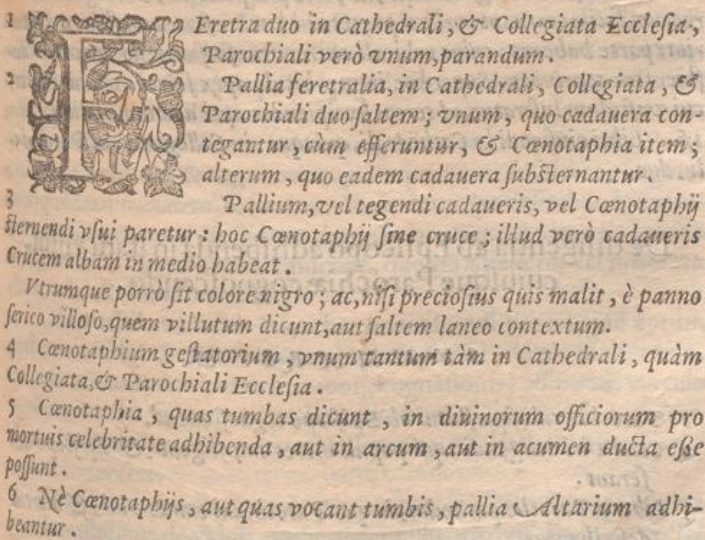 1 FEretra duo in Cathedrali, & Collegiata Ecclesia,
Parochiali verò vnum, parandum.
2 Pallia feretralia, in Cathedrali, Collegiata, &
Parochiali duo saltem; vnum, quo cadauera con-
tegantur, cùm efferuntur, & Cœnotaphia item;
alterum, quo eadem cadauera substernantur.
3 Pallium, vel tegendi cadaueris, vel Cœnotaphij
sternendi vsui paretur: hoc Cœnotaphij sine cruce; illud verò cadaueris
Crucem albam in medio habeat.
Vtrumque porrò sit colore nigro; ac, nisi preciosius quis malit, è panno
serico villoso, quem villutum dicunt, aut saltem laneo contextum.
4 Cœnotaphium gestatorium, vnum tantum tàm in Cathedrali, quàm
Collegiata, & Parochiali Ecclesia.
5 Cœnotaphia, quas tumbas dicunt, in diuinorum officiorum pro
mortuis celebritate adhibenda, aut in arcum, aut in acumen ducta esse
possunt.
6 Nè Cœnotaphijs, aut quas vocant tumbis, pallia Altarium adhi-
beantur.